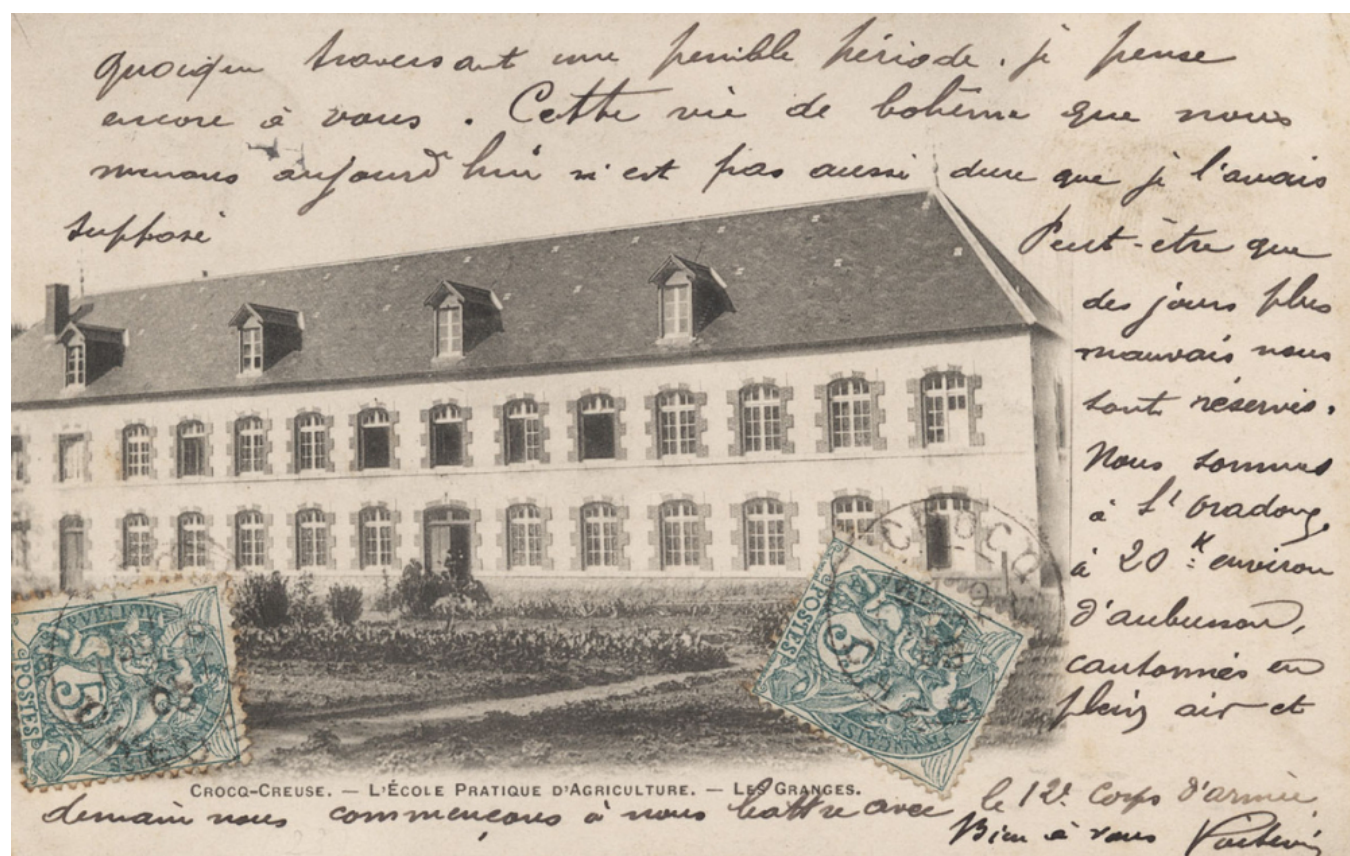 quoique traversant une penible période, je pense
encore à vous. Cette vie de bohême que nous
menons aujourd'hui n'est pas aussi dure que je l'avais
supposé
Peut-être que
des jours plus
mauvais nous
sont réservés.
Nous sommes
à St Oradoux,
à 20 K environ
d'aubusson,
cantonnés en
plein air et
demain nous commençons à nous battre avec
le 12e Corps d'armée
Bien à vous
CROCQ-CREUSE. — L'ÉCOLE PRATIQUE D'AGRICULTURE. — LES GRANGES.
CROCQ
POSTES
5
POSTES
5